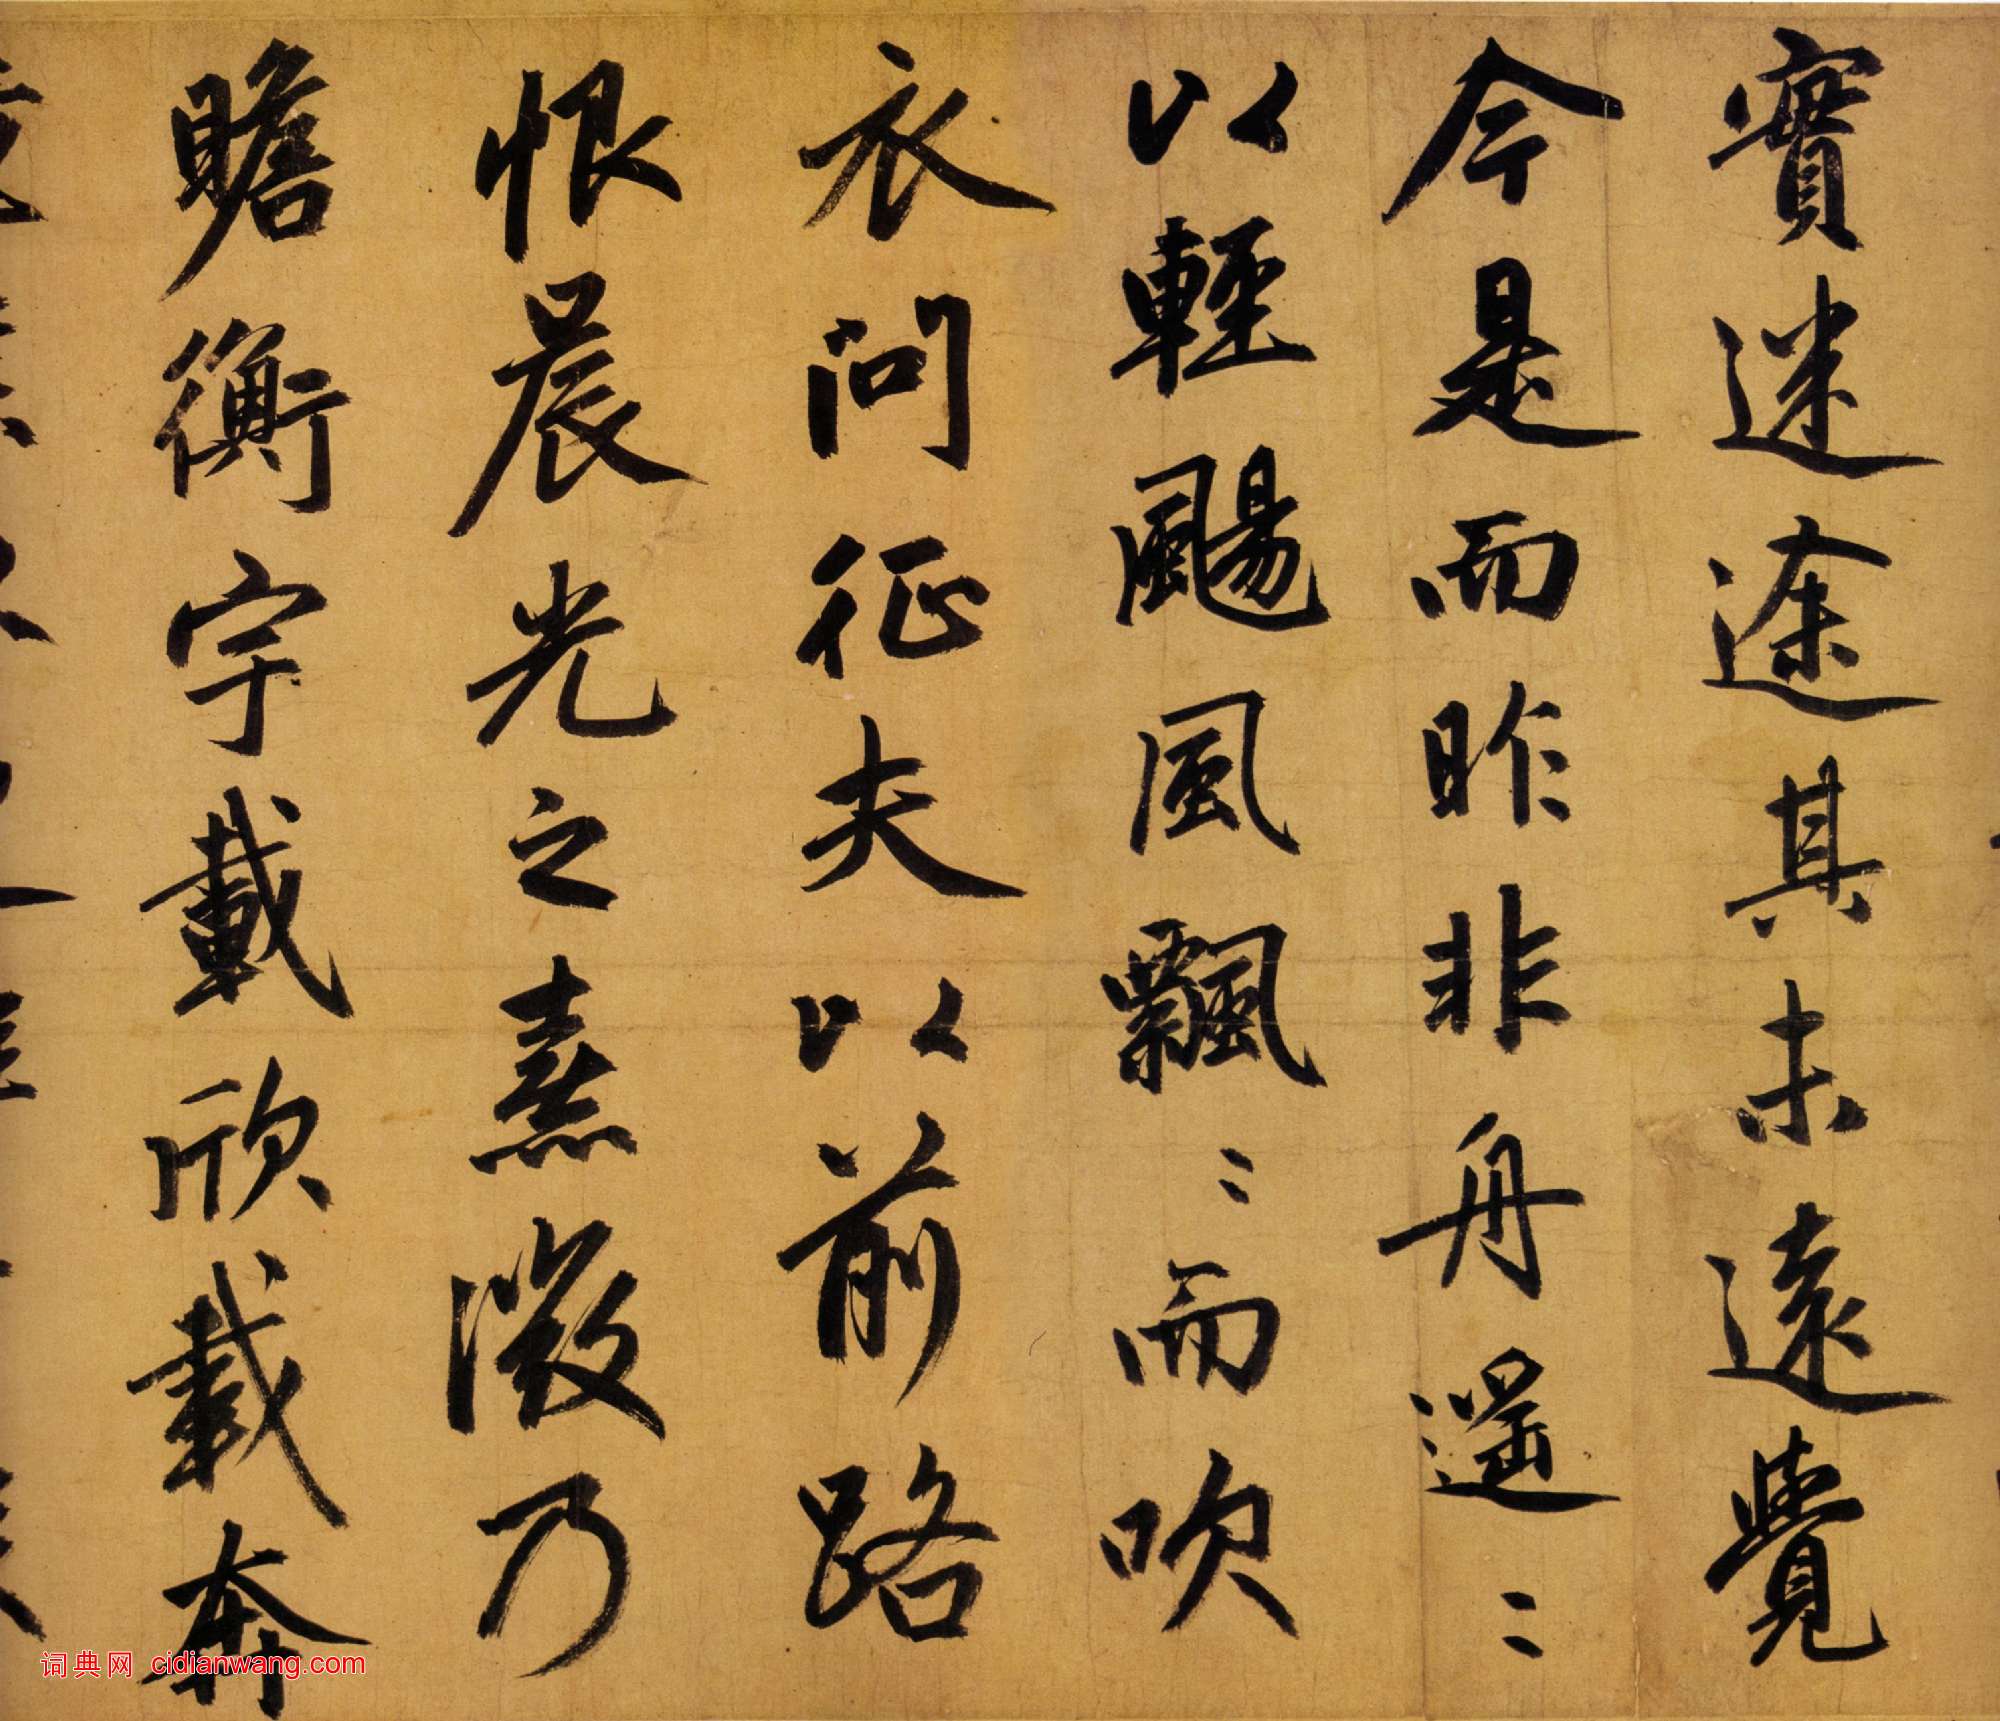 實迷途其未遠覺
今是而昨非舟遥〻
以輕颺風飄〻而吹
衣問征夫以前路
恨晨光之熹微乃
瞻衡宇載欣載奔
词典网 cidianwang.com